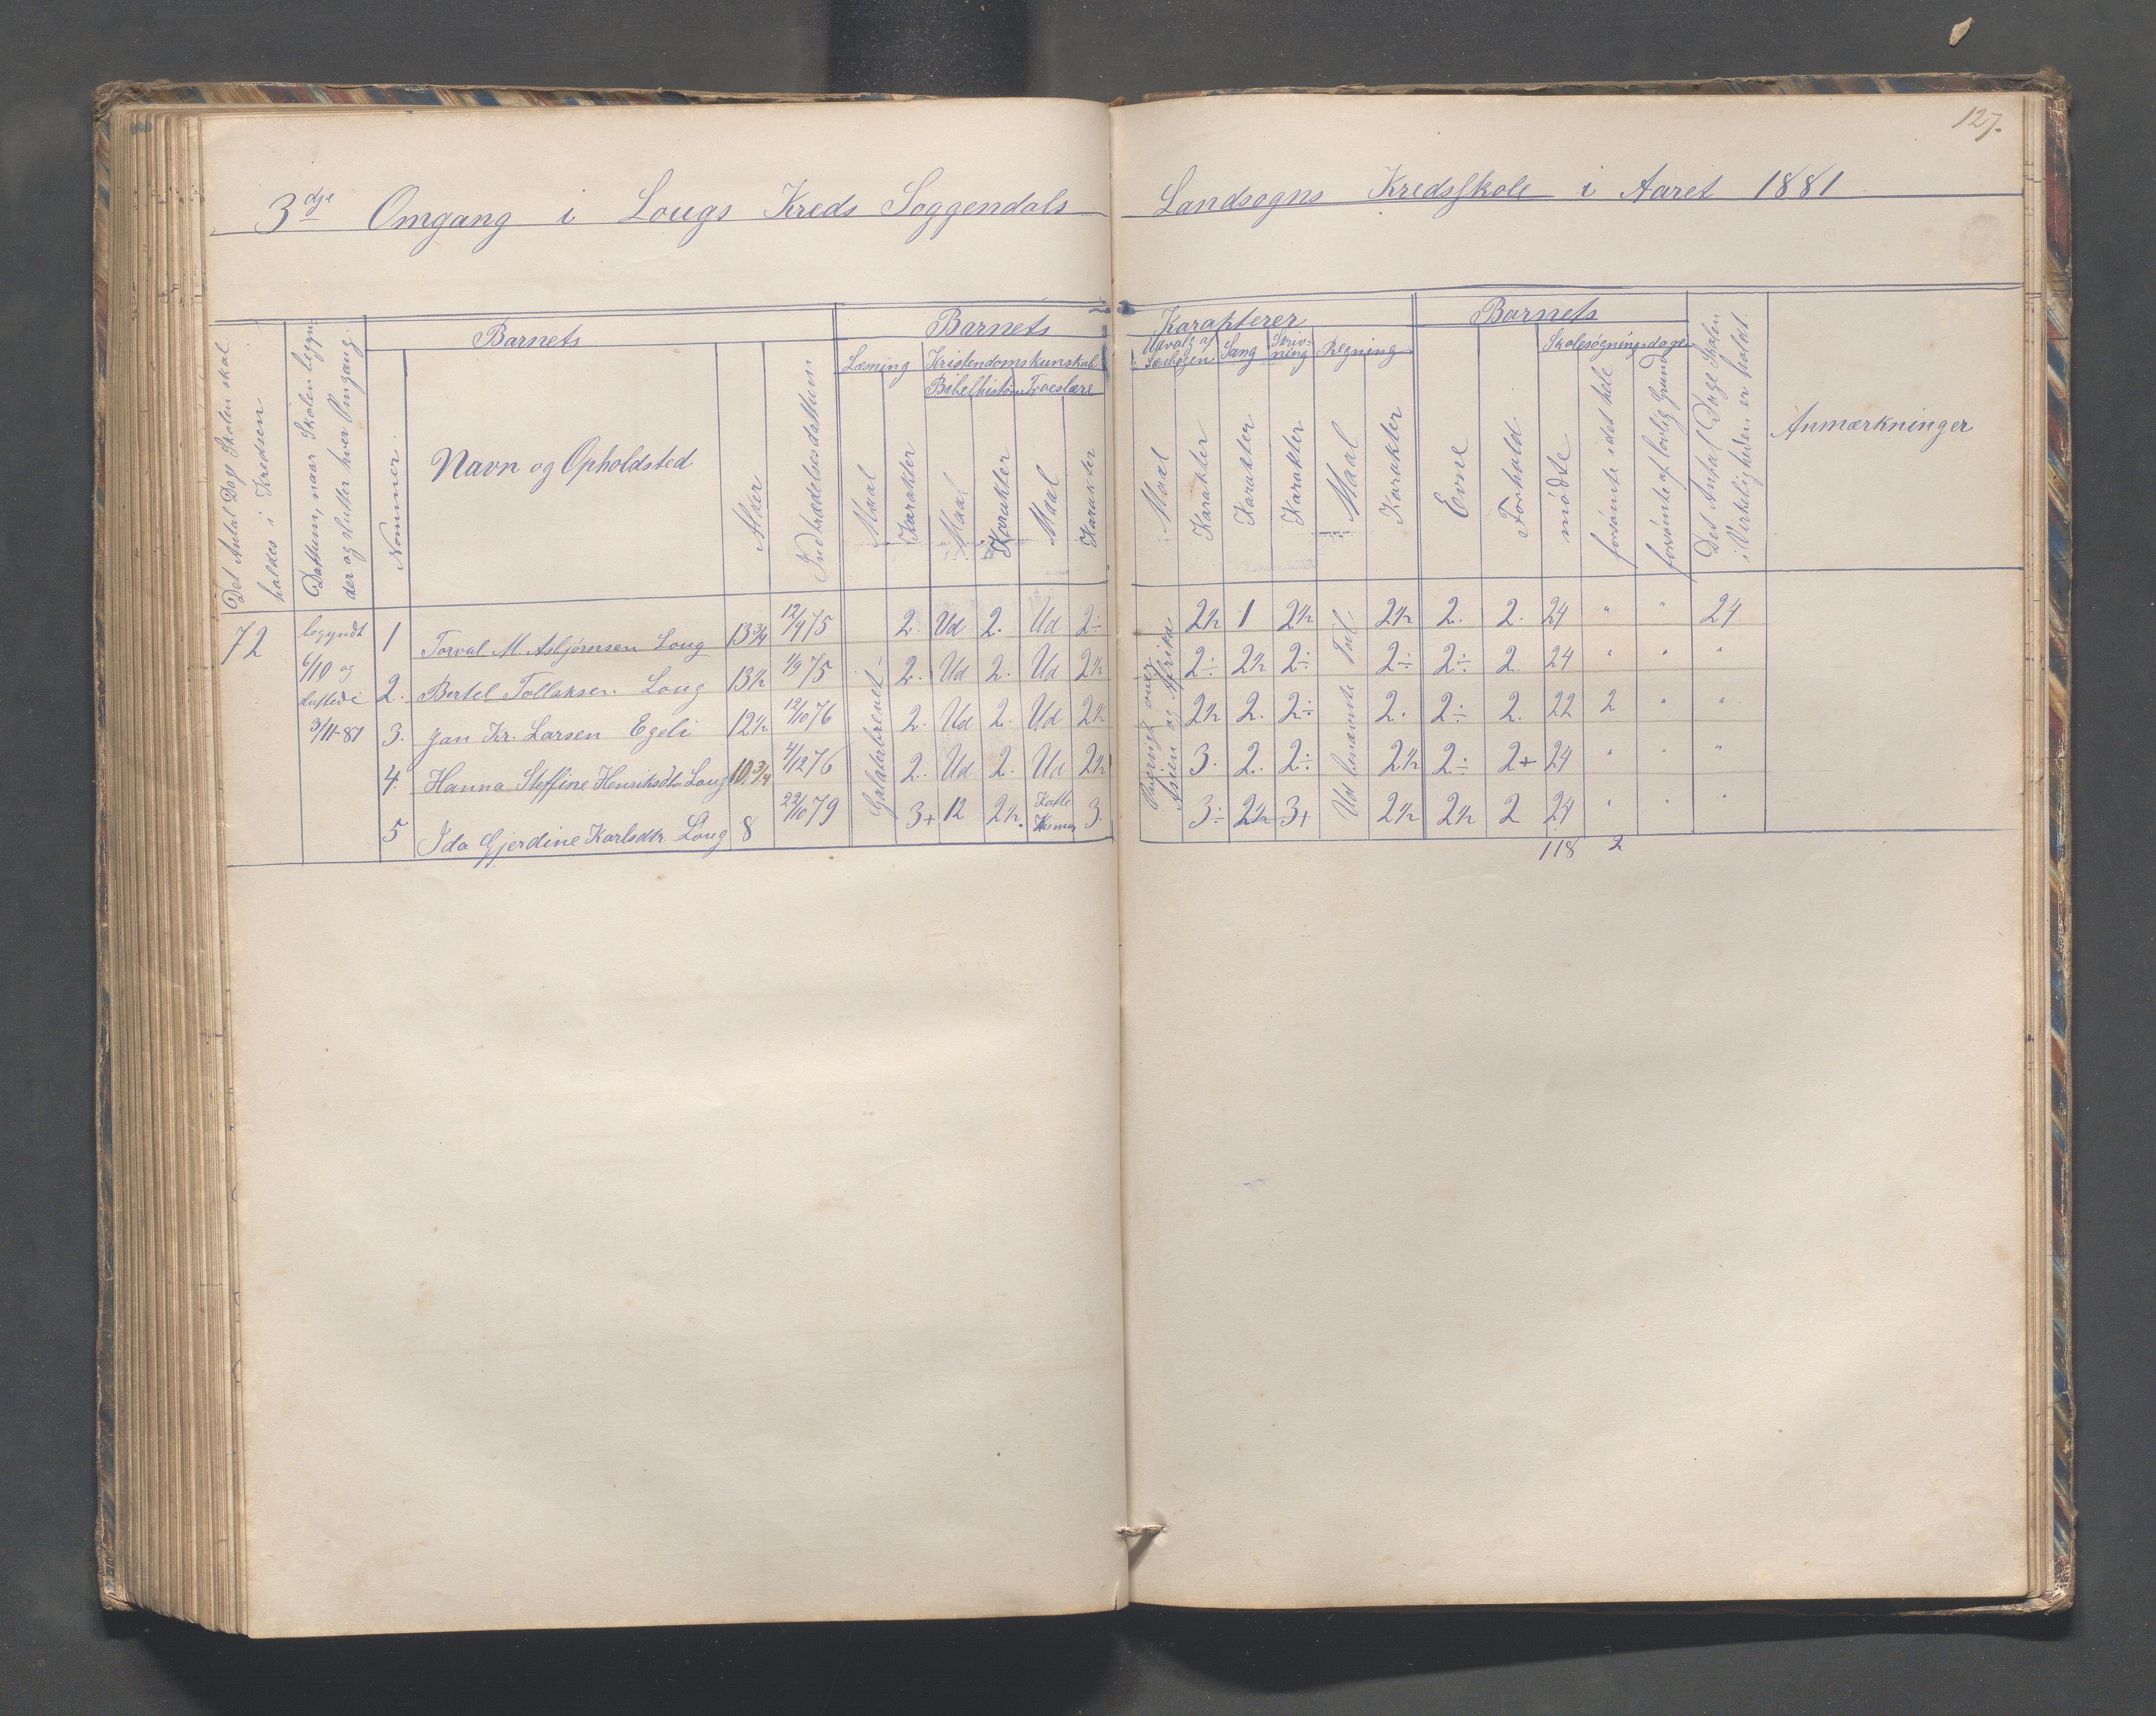 127.
3dje Omgang i Lougs Kreds Soggendals Landsogns Kredsskole i Aaret 1881
Det Antal Dage Skolen skal holdes i Kredsen
Dattum, naar Skolen begynder og slutter hver Omgang.
Nommer.
Barnets
Navn og Opholdsted
Alder
Indtrædelsesdattum
Barnets Karakterer
Læsning
Kristendomskunskab
Bibelhistorie
Troeslære
Udvalg af Læsebogen
Sang
Skrivning
Regning
Maal Karakter Maal Karakter Maal Karakter
Maal Karakter Karakter Karakter Maal Karakter
Barnets
Evne
Forhold
Skolesøgningsdage
mødte
forsømte i det hele
forsømte af lovlig Grund
Det Antal Dage Skolen i Virkeligheden er holdt.
Anmærkninger
72
begyndt
6/10 og
sluttede
3/11-81
Galaterbrevet
Asien og Afrika
Ud benævnte Tal
1 Torval M Asbjørnsen Loug 13 3/4 12/9 75 2. Ud 2. Ud 2÷ 2½ 1 2½ 2½ 2. 2. 24 " " 24
2. Bertel Tollaksen Loug 13½ 1/9 75 2. Ud 2. Ud 2½ 2÷ 2½ 2÷ 2÷ 2÷ 2. 24 " " "
3. Jan Kr. Larsen Egeli 12½ 12/10 76 2. Ud 2. Ud 2½ 2½ 2. 2÷ 2. 2÷ 2. 22 2 " "
4. Hanna Steffine Henriksdtr Loug 10 3/4 4/12 76 2. Ud 2. Ud 2½ 3. 2. 2÷ 2½ 2÷ 2+ 24 " " "
5 Ida Gjerdine Karlsdtr. Loug 8 22/10 79 3+ 12 2½. 3. 3÷ 2½ 3+ 2½ 2½ 2 24 " " "
118 2